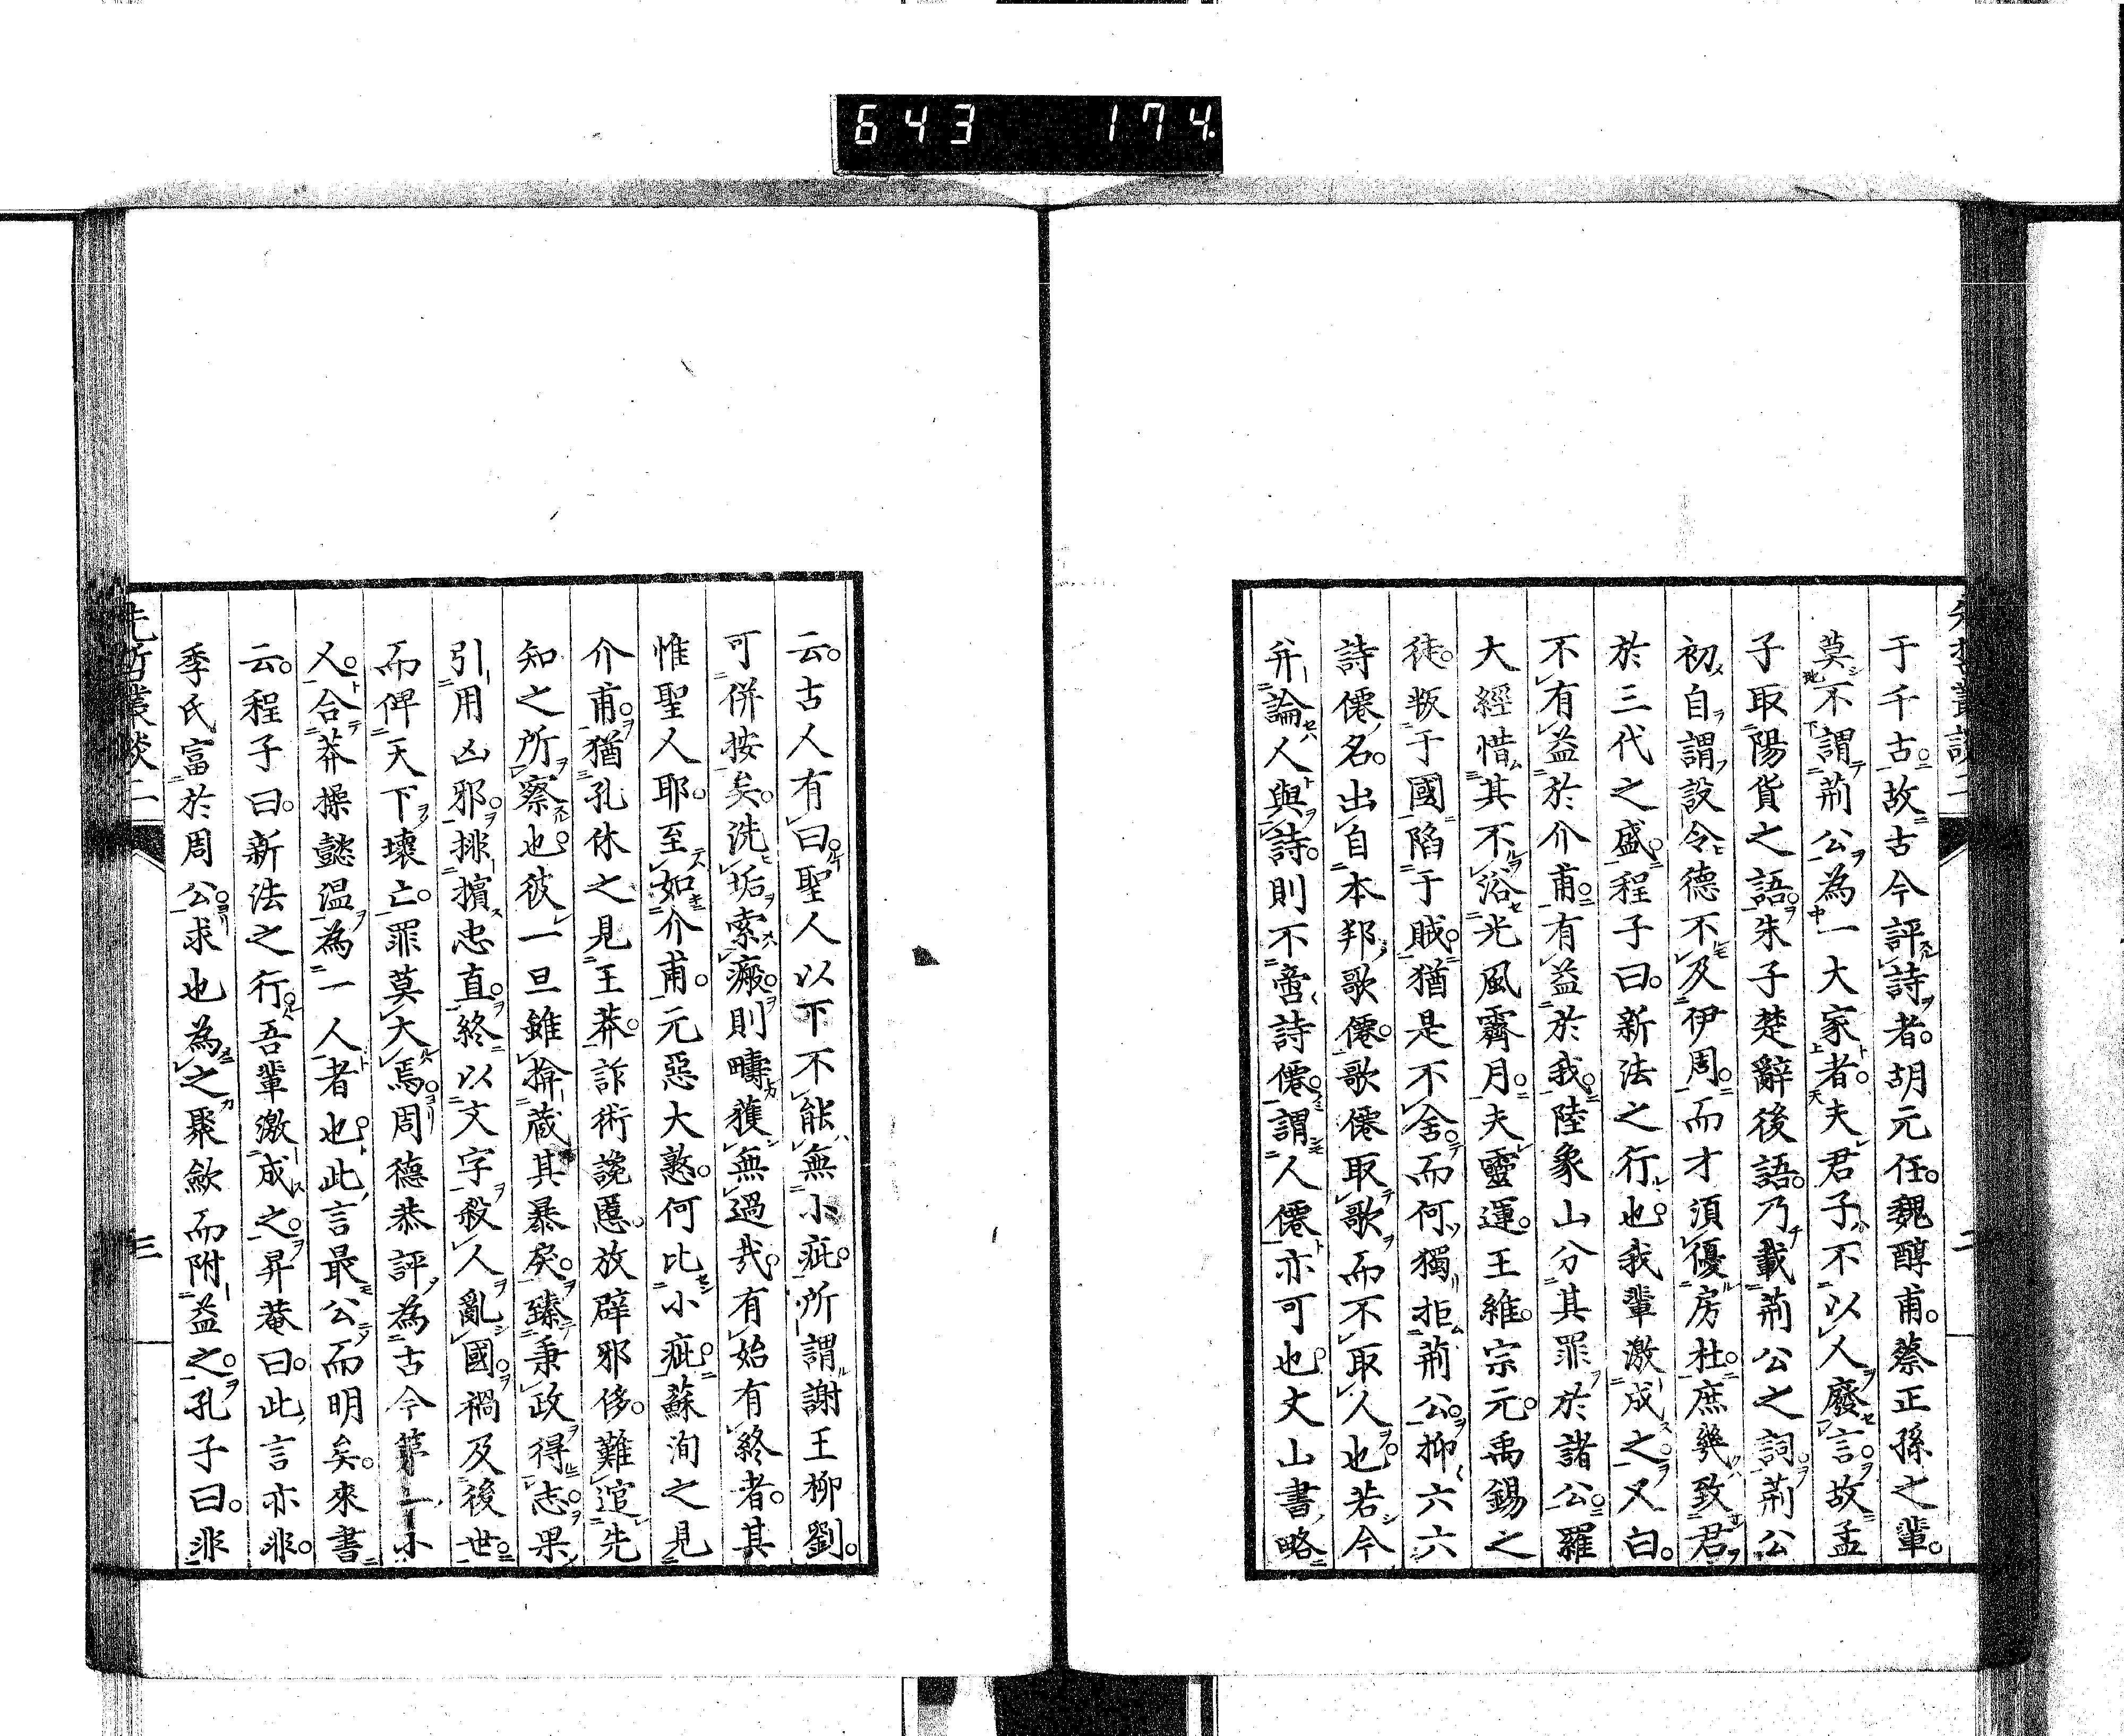 643 174
于千古故古今評詩者胡元任魏醇甫蔡正孫之輩
莫不謂荊公為一大家者夫君子不以人廢言故孟
子取陽貨之語朱子楚辭後語乃載荊公之詞荊公
初自謂設令德不及伊周而才須優房杜庶幾致君
於三代之盛程子曰新法之行也我輩激成之又曰
不有益於介甫有益於我陸象山分其罪於諸公羅
大經惜其不浴光風霽月夫靈運王維宗元禹錫之
徒叛于國陷于賊猶是不舍而何獨拒荊公抑六六
詩僊名出自本邦歌僊歌僊取歌而不取人也若今
并論人與詩則不啻詩僊謂人僊亦可也丈山書略
云古人有曰聖人以下不能無小疵所謂謝王柳劉
可併按矣洗垢索瘢則疇獲無過哉有始有終者其
惟聖人耶至如介甫元惡大憝何比小疵蘇洵之見
介甫猶孔休之見王莽詐術讒慝放辟邪侈難逭先
知之所察也彼一旦雖揜藏其暴戾臻秉政得志果
引用凶邪排擯忠直終以文字殺人亂國禍及後世
而俾天下壞亡罪莫大焉周德恭評為古今第一小
人合莽操懿温為一人者也此言最公而明矣來書
云程子曰新法之行吾輩激成之昇菴曰此言亦非
季氏富於周公求也為之聚歛而附益之孔子曰非
先哲叢談二
三